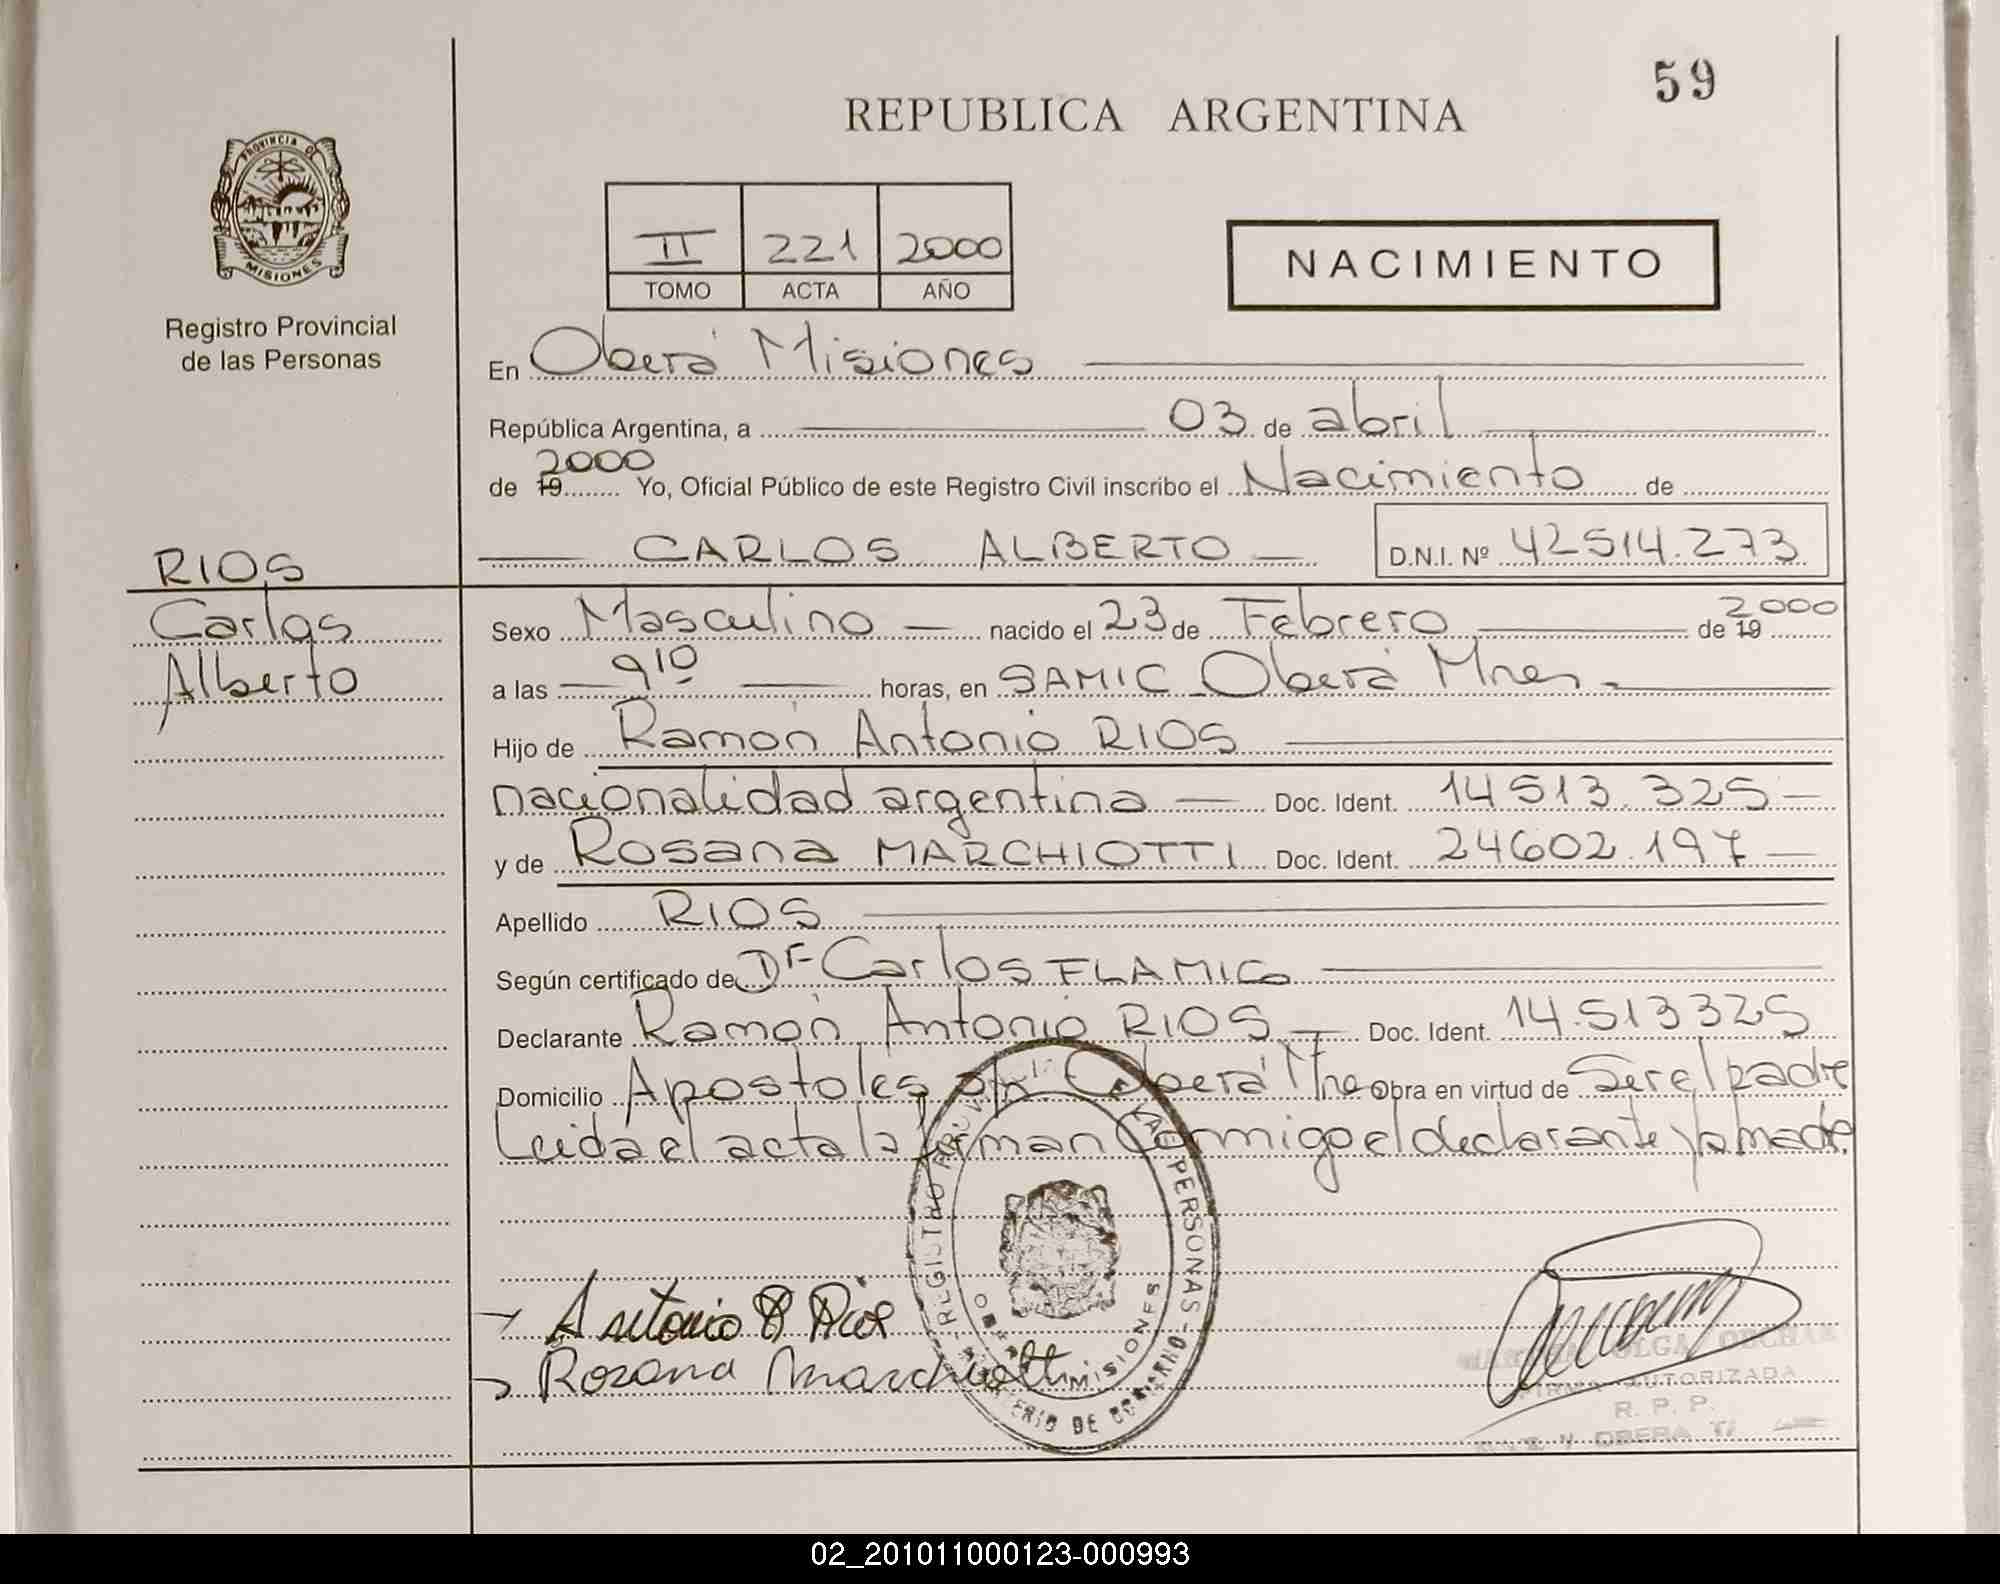 59
REPUBLICA ARGENTINA
PROVINCIA DE
MISIONES
Registro Provincial
de las Personas
II 221 2000
TOMO ACTA AÑO
NACIMIENTO
En Oberá Misiones
República Argentina, a 03 de abril
de 19 2000 Yo, Oficial Público de este Registro Civil inscribo el Nacimiento de
CARLOS ALBERTO D.N.I. Nº 42514.273
RIOS
Carlos
Alberto
Sexo Masculino nacido el 23 de Febrero de 19 2000
a las 9 10 horas, en SAMIC Oberá Mnes.
Hijo de Ramón Antonio RIOS
nacionalidad argentina Doc. Ident. 14513.325
y de Rosana MARCHIOTTI Doc. Ident. 24602.197
Apellido RIOS
Según certificado de Dr Carlos FLAMIG
Declarante Ramón Antonio RIOS Doc. Ident. 14.513325
Domicilio Apostoles s/n Oberá Mnes Obra en virtud de Ser el padre
Leida el acta la firman conmigo el declarante y la madre.
Antonio R Rios
Rosana Marchiotti
REGISTRO PROVINCIAL DE LAS PERSONAS
MISIONES
MINISTERIO DE GOBIERNO
OLGA
FIRMA AUTORIZADA
R. P. P.
OBERA
02_201011000123-000993